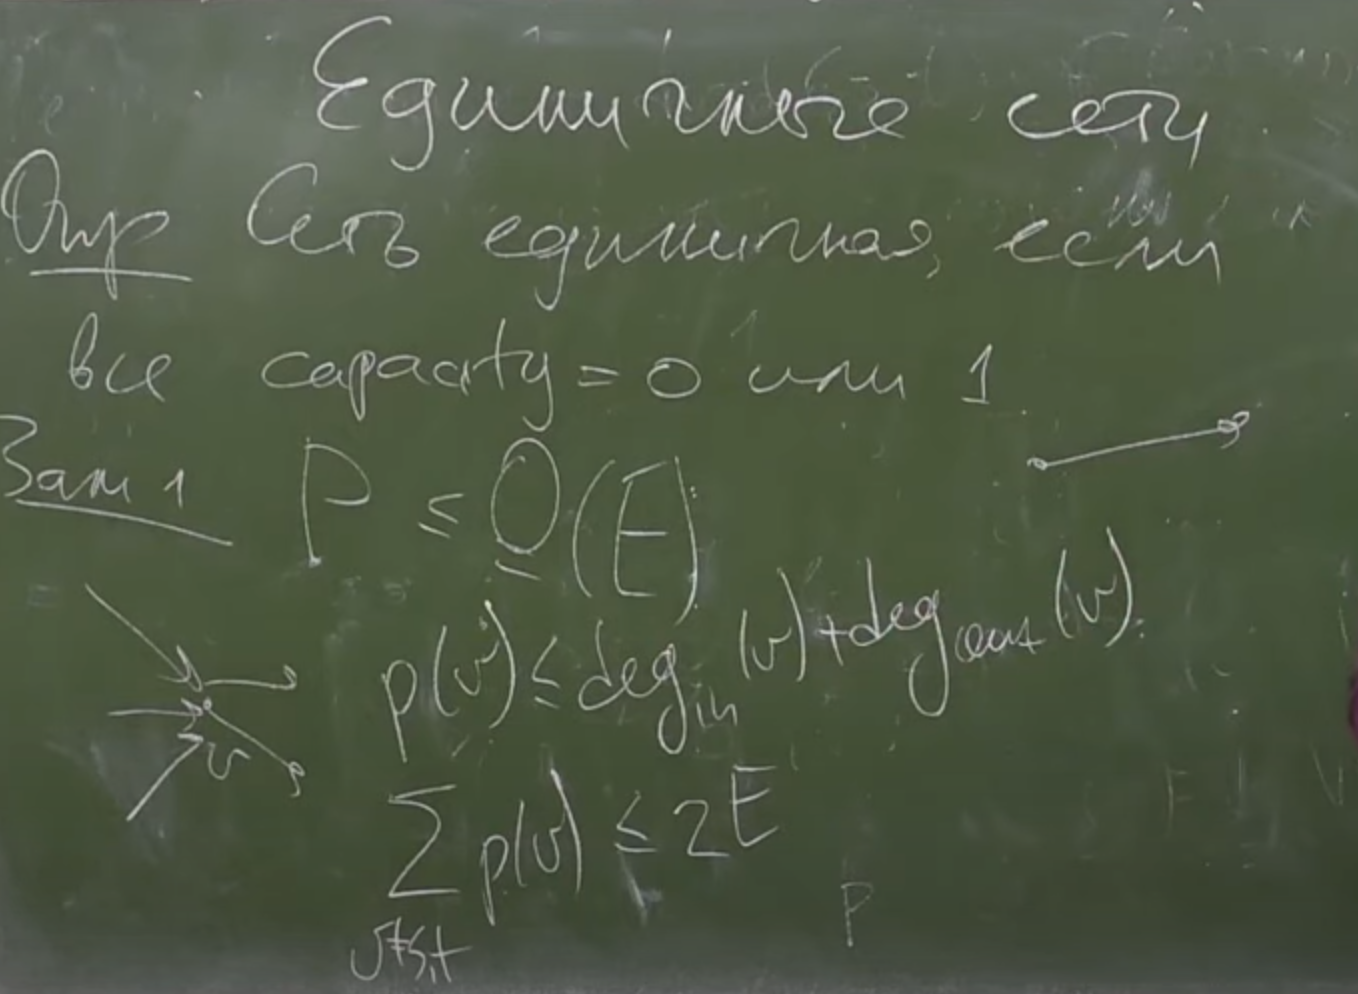 Единичные сети
Опр Сеть единичная, если
все capacity = 0 или 1
Зам 1 P ≤ O(E)
p(v) ≤ deg_in (v) + deg_out (v)
v
∑ p(v) ≤ 2E
v≠s,t
P